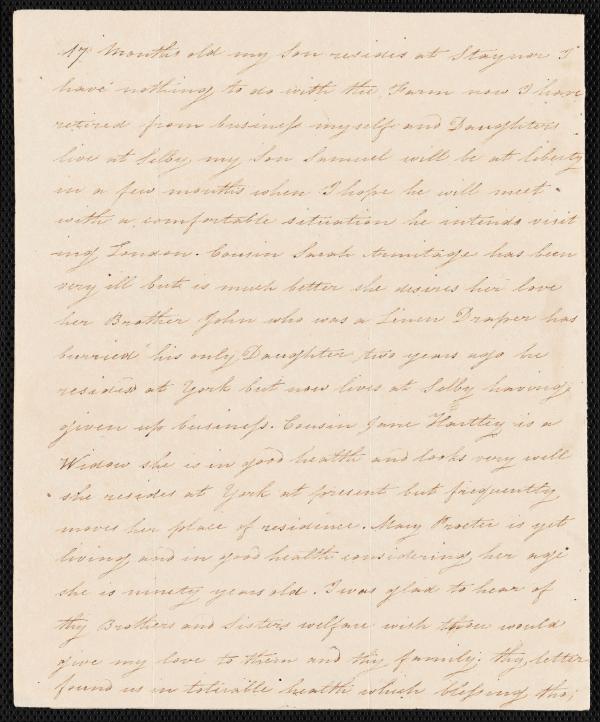 17 Months old my Son resides at Staynor I
have nothing to do with the Farm now I have
retired from business myself and Daughters
live at Selby, my Son Samuel will be at liberty
in a few months when I hope he will meet
with a comfortable situation he intends visit
ing London. Cousin Sarah Armitage has been
very ill but is much better she desires her love
her Brother John who was a Linen Draper has
burried his only Daughter two years ago he
resided at York but now lives at Selby having
given up business. Cousin Jane Hartley is a
Widow she is in good health and looks very well
she resides at York at present but frequently
moves her place of residence. Mary Procter is yet
living and in good health considering her age
she is ninety years old. I was glad to hear of
thy Brothers and Sisters welfare wish thou would
give my love to them and thy family. thy letter
found us in tolirable health which blessing tho;